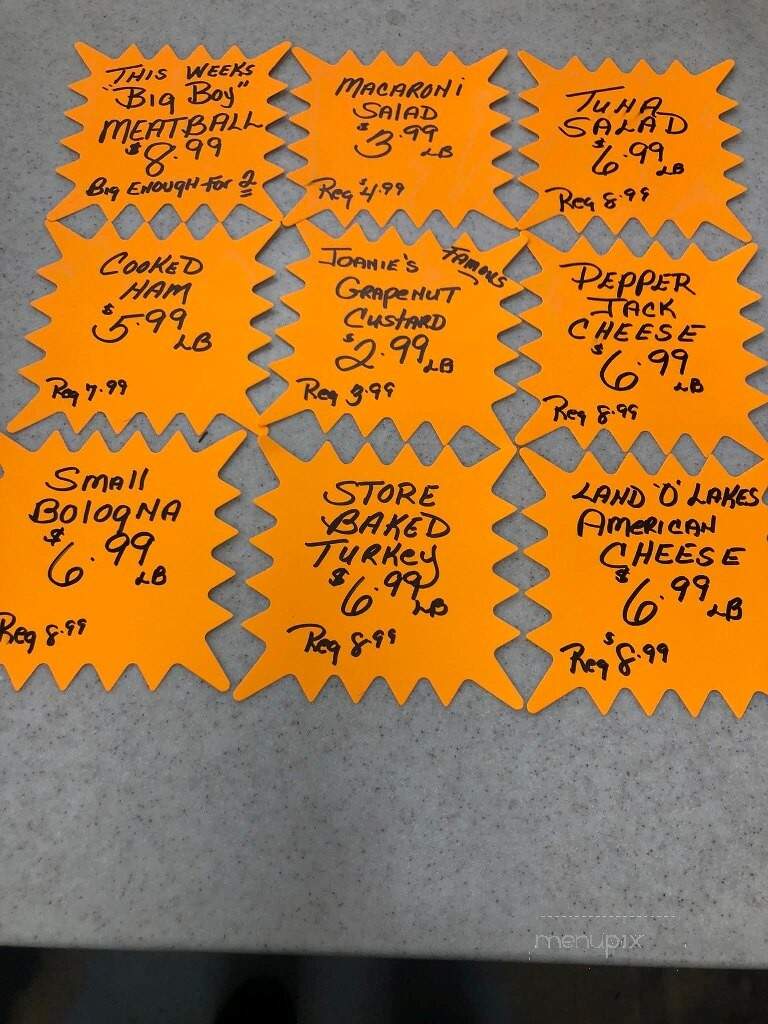 THIS WEEKS
"Big Boy"
MEATBALL
$8.99
Big Enough For 2
MACARONi
SALAD
$3.99 LB
Reg $4.99
TUNA
SALAD
$6.99 LB
Reg 8.99
COOKED
HAM
$5.99 LB
Reg 7.99
JOANIE'S FAMOUS
GRAPENUT
CUSTARD
$2.99 LB
Reg 3.99
PEPPER
JACK
CHEESE
$6.99 LB
Reg 8.99
SMAll
BOlOgNA
$6.99 LB
Reg 8.99
STORE
BAKED
TURKEY
$6.99 LB
Reg 8.99
LAND 'O' LAKES
AMERICAN
CHEESE
$6.99 LB
Reg $8.99
menupix